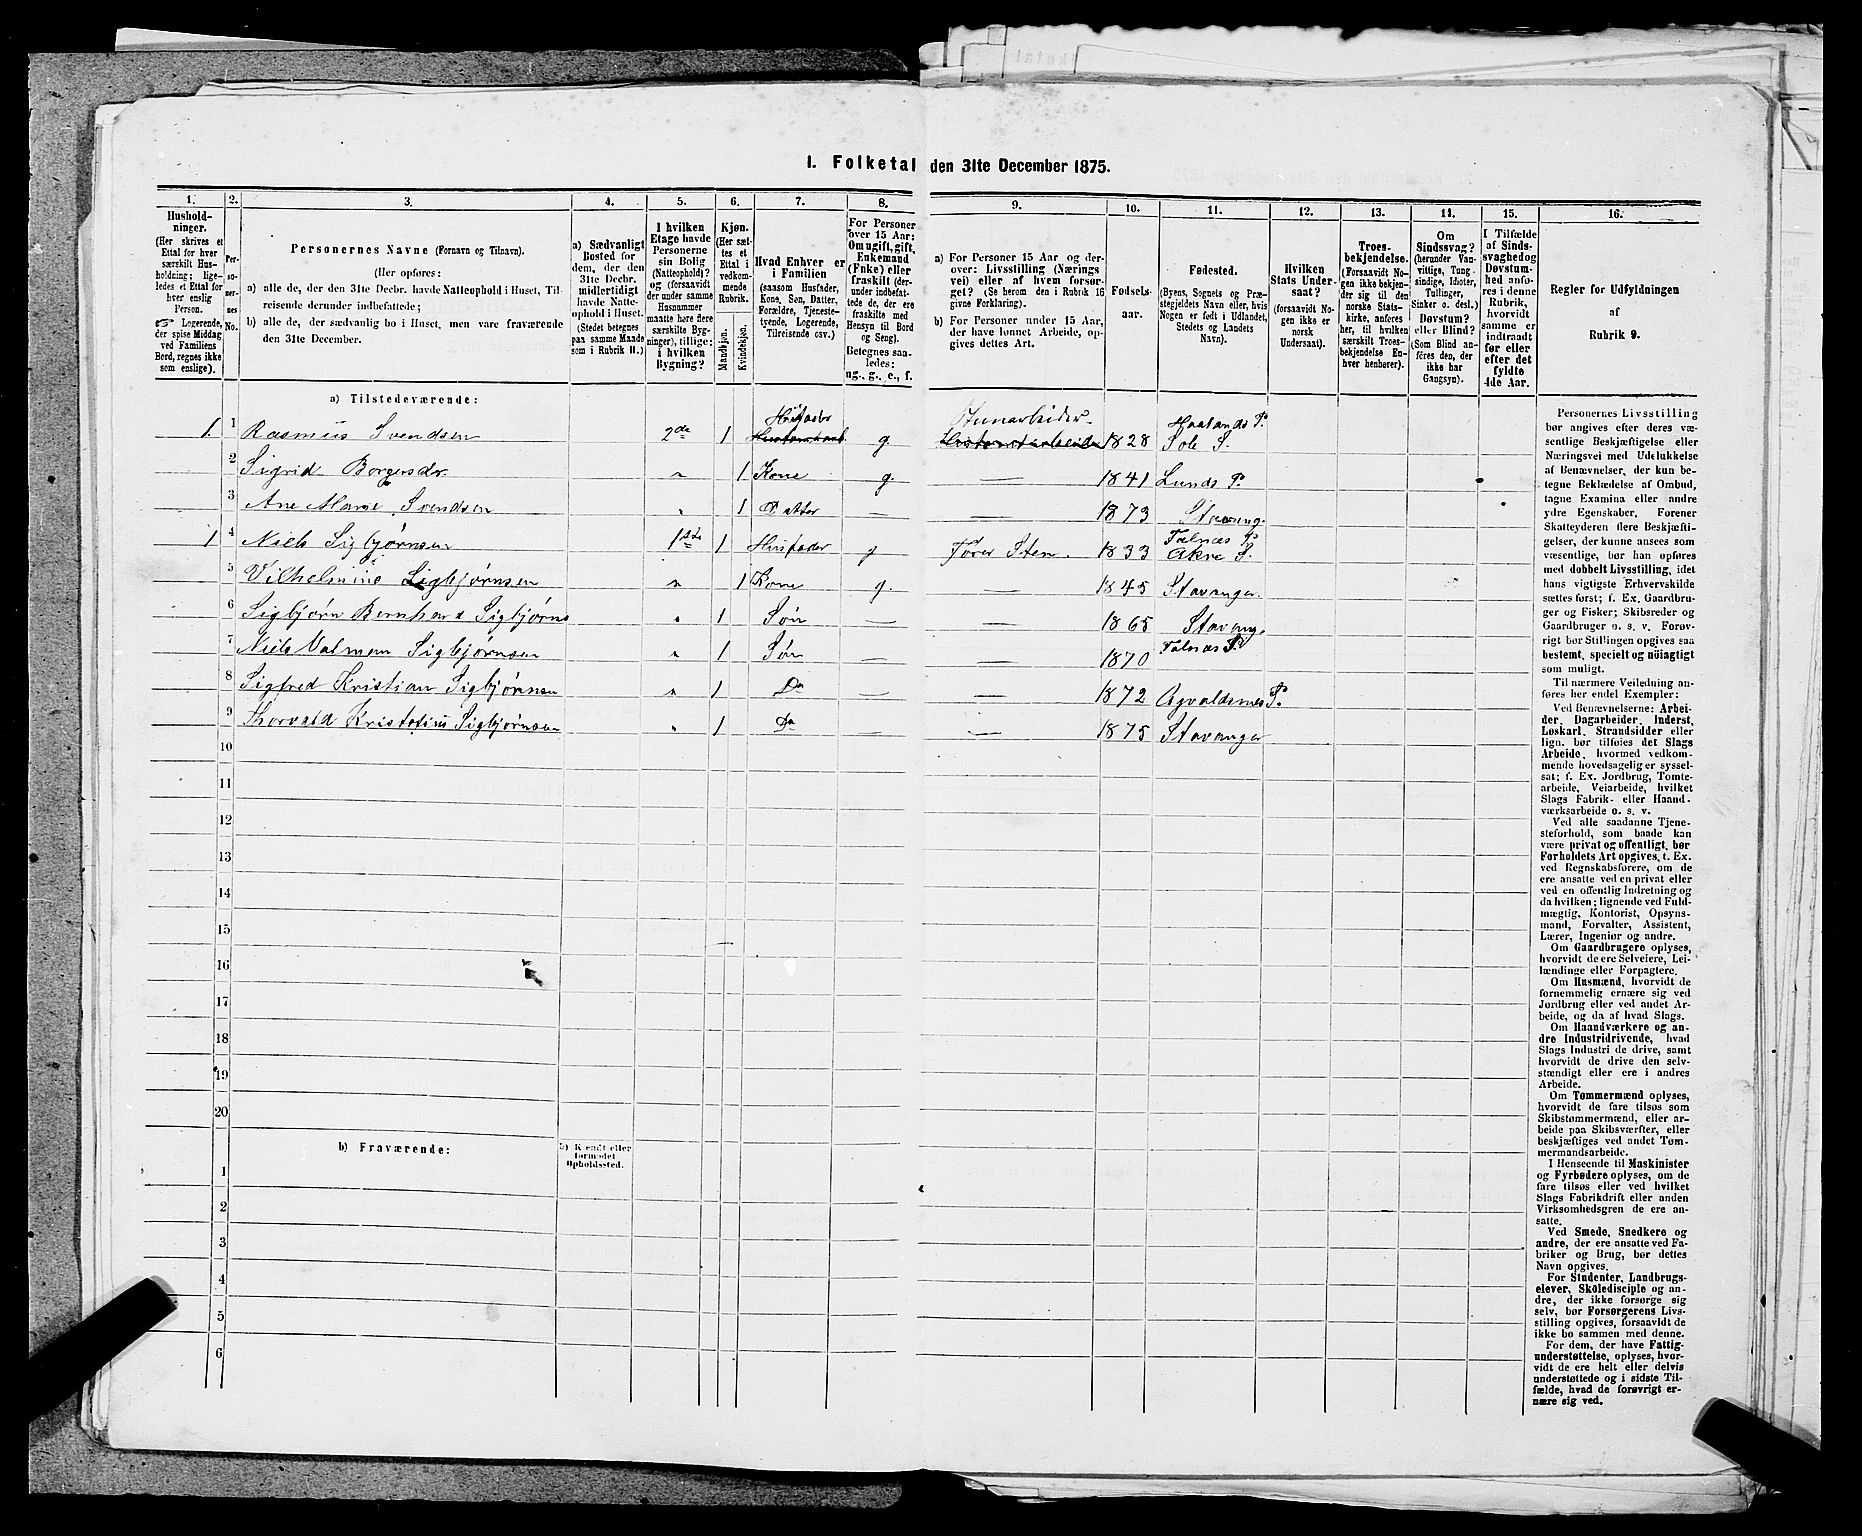 1. Folketal den 31te December 1875.
1. 2. 3. 4. 5. 6. 7. 8. 9. 10. 11. 12. 13. 14. 15. 16.
Hushold-
ninger.
(Her skrives et
Ettal for hver
særskilt Hus-
holdning; lige-
ledes et Ettal for
hver enslig
Person.
☞ Logerende,
der spise Middag
ved Familiens
Bord, regnes ikke
som enslige).
Per-
so-
ner-
nes
No.
Personernes Navne (Fornavn og Tilnavn).
(Her opføres:
a) alle de, der den 31te Decbr. havde Natteophold i Huset, Til-
reisende derunder indbefattede;
b) alle de, der sædvanlig bo i Huset, men vare fraværende
den 31te December.
a) Sædvanligt
Bosted for
dem, der den
31te Decbr.
midlertidigt
havde Natte-
ophold i Huset.
(Stedet betegnes
paa samme Maade
som i Rubrik 11.)
I hvilken
Etage havde
Personerne
sin Bolig
(Natteophold)?
og (forsaavidt
der under samme
Husnummer
maatte høre flere
særskilte Byg-
ninger), tillige:
i hvilken
Bygning?
Kjøn.
(Her sæt-
tes et
Ettal i
vedkom-
mende
Rubrik.
Mandkjøn.
Kvindekjøn.
Hvad Enhver er
i Familien
(saasom Husfader,
Kone, Søn, Datter,
Forældre, Tjeneste-
tyende, Logerende,
Tilreisende osv.)
For Personer
over 15 Aar:
Om ugift, gift,
Enkemand
(Enke) eller
fraskilt (der-
under indbefat-
tede de, der ere
fraskilte med
Hensyn til Bord
og Seng).
Betegnes saa-
ledes:
ug., g., e., f.
a) For Personer 15 Aar og der-
over: Livsstilling (Nærings
vei) eller af hvem forsør-
get? (Se herom den i Rubrik 16
givne Forklaring).
b) For Personer under 15 Aar,
der have lønnet Arbeide, op-
gives dettes Art.
Fødsels-
aar.
Fødested.
(Byens, Sognets og Præ-
stegjeldets Navn eller, hvis
Nogen er født i Udlandet,
Stedets og Landets
Navn).
Hvilken
Stats Under-
saat?
(forsaavidt No-
gen ikke er
norsk
Undersaat).
Troes-
bekjendelse.
(Forsaavidt No-
gen ikke bekjen-
der sig til den
norske Stats-
kirke, anføres
her, til hvilken
særskilt Troes-
bekjendelse En-
hver henhører).
Om
Sindssvag?
(herunder Van-
vittige, Tung-
sindige, Idioter,
Tullinger,
Sinker o. desl.)
Døvstum?
eller Blind?
(Som Blind an-
føres den, der
ikke har
Gangsyn).
I Tilfælde
af Sinds-
svaghed og
Døvstum-
hed anfø-
res i denne
Rubrik,
hvorvidt
samme er
indtraadt
før eller
efter det
fyldte
4de Aar.
Regler for Udfyldningen
af
Rubrik 9.
a) Tilstedeværende:
1. 1 Rasmus Svendsen 2de 1 Husfader g. Stenarbeider 1828 Haalands P. Sole S.
2 Sigrid Borgersdr. " 1 Kone g. — 1841 Lunds P.
3 Ane Marie Svendsen " 1 Datter — — 1873 Stavang.
1 4 Niels Sigbjørnsen 1ste 1 Husfader g Fører Sten 1833 Falnæs P. Akre S.
5 Vilhelmine Sigbjørnsen " 1 Kone g. — 1845 Stavanger.
6 Sigbjørn Bernhard Sigbjørns " 1 Søn — — 1865 Stavang.
7 Niels Valman Sigbjørnsen " 1 Søn — — 1870 Falnæs P.
8 Sigfred Kristian Sigbjørnsen " 1 Do — — 1872 Agvaldsnes P.
9 Thorvald Kristofius Sigbjørnsen " 1 Do — — 1875 Stavanger
10
11
12
13
14
15
16
17
18
19
20
b) Fraværende:
b) Kjendt eller
formodet
Opholdssted.
1
2
3
4
5
6
Personernes Livsstilling
bør angives efter deres væ-
sentlige Beskjæftigelse eller
Næringsvei med Udelukkelse
af Benævnelser, der kun be-
tegne Beklædelse af Ombud,
tagne Examina eller andre
ydre Egenskaber. Forener
Skatteyderen flere Beskjæfti-
gelser, der kunne ansees som
væsentlige, bør han opføres
med dobbelt Livsstilling, idet
hans vigtigste Erhvervskilde
sættes først; f. Ex. Gaardbru-
ger og Fisker; Skibsreder og
Gaardbruger o. s. v. Forøv-
rigt bør Stillingen opgives saa
bestemt, specielt og nøiagtigt
som muligt.
Til nærmere Veiledning an-
føres her endel Exempler:
Ved Benævnelserne: Arbei-
der, Dagarbeider, Inderst,
Løskarl, Strandsidder eller
lign. bør tilføies det Slags
Arbeide, hvormed vedkom-
mende hovedsagelig er syssel-
sat; f. Ex. Jordbrug, Tomte-
arbeide, Veiarbeide, hvilket
Slags Fabrik- eller Haand-
værksarbeide o. s. v.
Ved alle saadanne Tjene-
steforhold, som baade kan
være privat og offentligt, bør
Forholdets Art opgives, t. Ex.
ved Regnskabsførere, om de
ere ansatte ved en privat eller
ved en offentlig Indretning og
da hvilken; lignende ved Fuld-
mægtig, Kontorist, Opsyns-
mand, Forvalter, Assistent,
Lærer, Ingeniør og andre.
Om Gaardbrugere oplyses,
hvorvidt de ere Selveiere, Lei-
lændinge eller Forpagtere.
Om Husmænd, hvorvidt de
fornemmelig ernære sig ved
Jordbrug eller ved andet Ar-
beide, og da af hvad Slags.
Om Haandværkere og an-
dre Industridrivende, hvad
Slags Industri de drive, samt
hvorvidt de drive den selv-
stændigt eller ere i andres
Arbeide.
Om Tømmermænd oplyses,
hvorvidt de fare tilsøs som
Skibstømmermænd, eller ar-
beide paa Skibsværfter, eller
beskjæftiges ved andet Tøm-
mermandsarbeide.
I Henseende til Maskinister
og Fyrbødere oplyses, om de
fare tilsøs eller ved hvilket
Slags Fabrikdrift eller anden
Virksomhedsgren de ere an-
satte.
Ved Smede, Snedkere og
andre, der ere ansatte ved Fa-
briker og Brug, bør dettes
Navn opgives.
For Studenter, Landbrugs-
elever, Skoledisciple og an-
dre, der ikke forsørge sig
selv, bør Forsørgerens Livs-
stilling opgives, forsaavidt de
ikke bo sammen med denne.
For dem, der have Fattig-
understøttelse, oplyses, hvor-
vidt de ere helt eller delvis
understøttede og i sidste Til-
fælde, hvad de forøvrigt er-
nære sig ved.